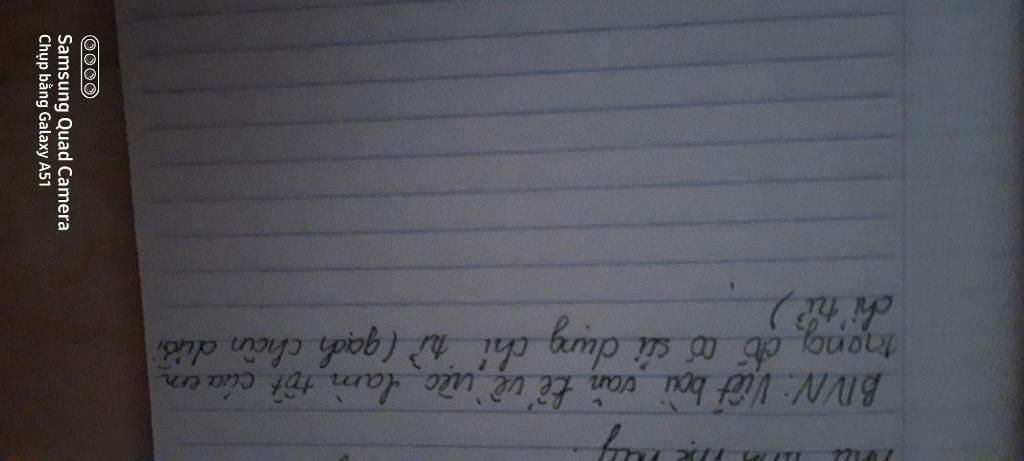 như hình mẹ này.
BTVN: Viết bài văn kể về việc làm tốt của em
trong đó có sử dụng chỉ từ (gạch chân dưới
chỉ từ)
Samsung Quad Camera
Chụp bằng Galaxy A51